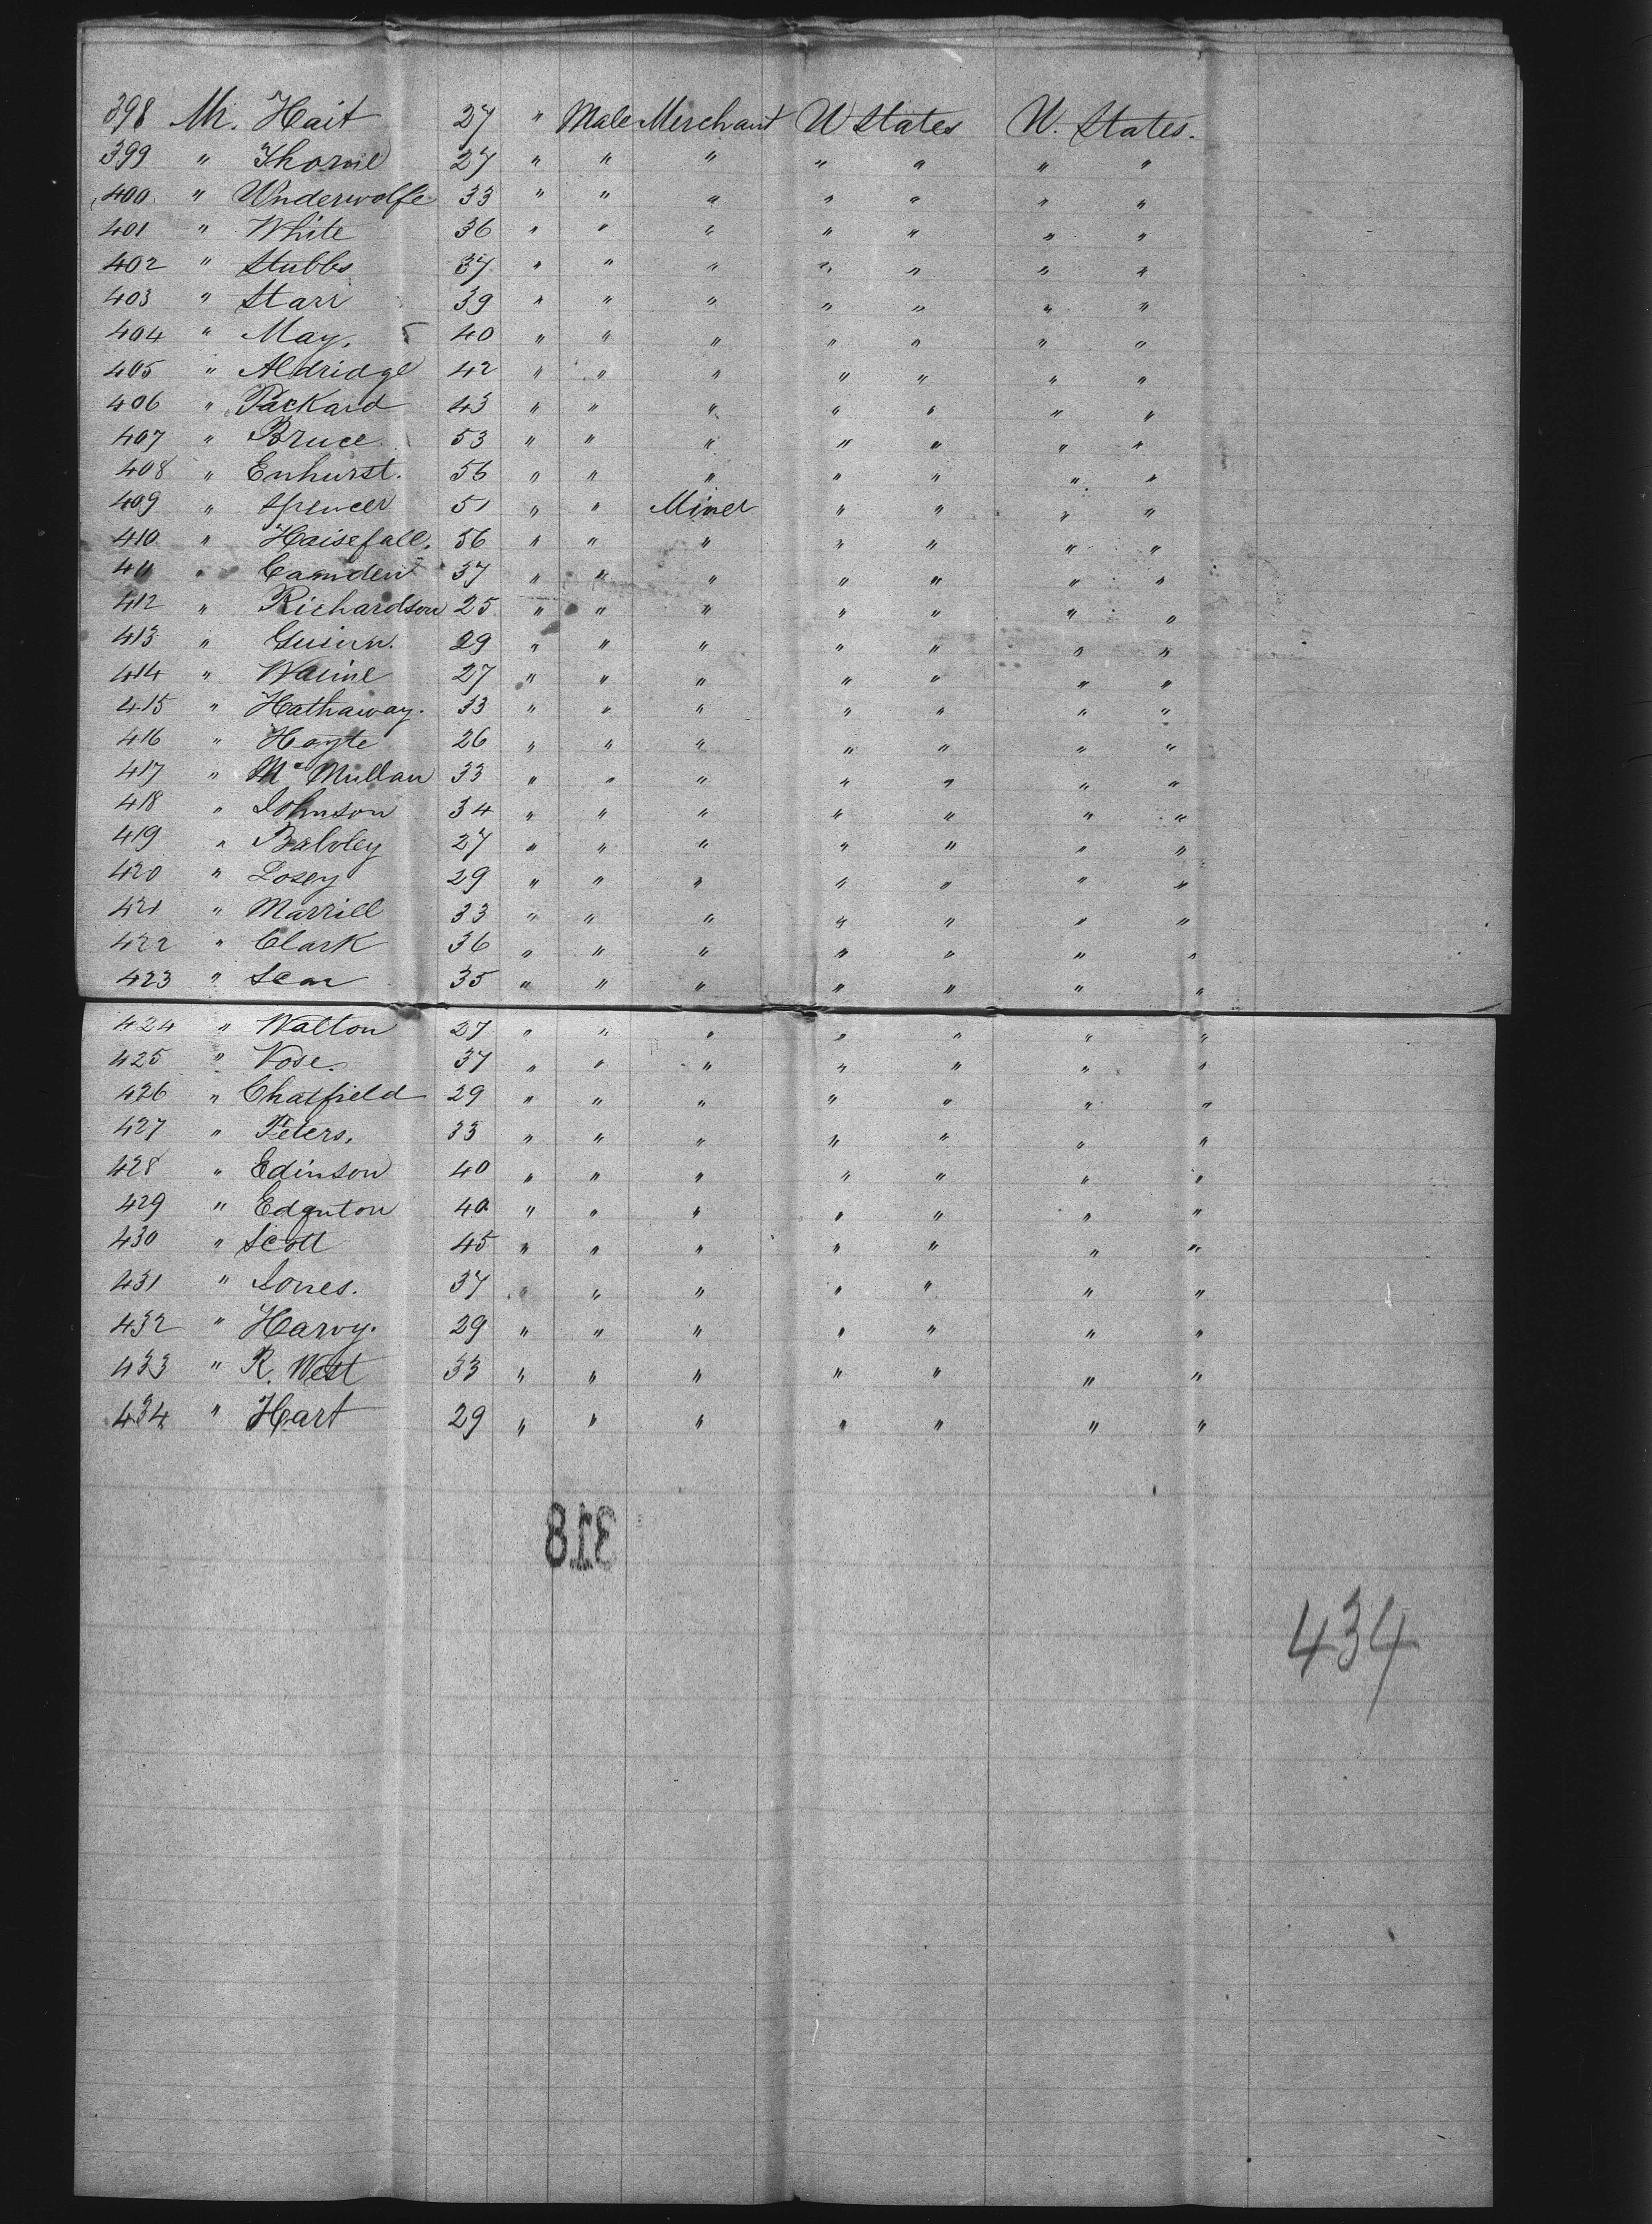 398 Mr. Hait 27 " Male Merchant U States U. States.
399 " Thorne 27 " " " " " " "
400 " Underwolfe 33 " " " " " " "
401 " White 36 " " " " " " "
402 " Stubbs 37 " " " " " " "
403 " Starr 39 " " " " " " "
404 " May, 40 " " " " " " "
405 " Aldridge 42 " " " " " " "
406 " Packard 43 " " " " " " "
407 " Bruce 53 " " " " " " "
408 " Enhurst. 56 " " " " " " "
409 " Spencer 51 " " Miner " " " "
410 " Haisefall, 56 " " " " " " "
411 " Camden 37 " " " " " " "
412 " Richardson 25 " " " " " " "
413 " Guinn. 29 " " " " " " "
414 " 27 " " " " " " "
415 " Hathaway. 33 " " " " " " "
416 " Hoyte 26 " " " " " " "
417 " Mc Mullan 33 " " " " " " "
418 " Johnson 34 " " " " " " "
419 " 27 " " " " " " "
420 " Losey 29 " " " " " " "
421 " Marrill 33 " " " " " " "
422 " Clark 36 " " " " " " "
423 " 35 " " " " " " "
424 " Walton 27 " " " " " " "
425 " Vose. 37 " " " " " " "
426 " Chatfield 29 " " " " " " "
427 " Peters, 33 " " " " " " "
428 " Edinson 40 " " " " " " "
429 " 40 " " " " " " "
430 " Scott 45 " " " " " " "
431 " Jones. 37 " " " " " " "
432 " Harvy. 29 " " " " " " "
433 " R. West 33 " " " " " " "
434 " Hart 29 " " " " " " "
318
434